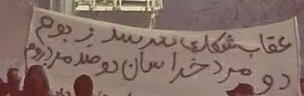 عقاب شکاری نترسد ز بوم
دو مرد خراسان دو صد مرد روم